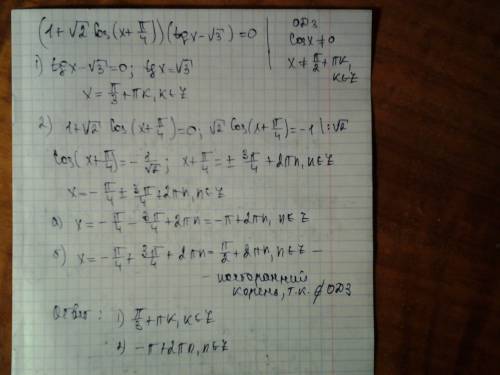 (1+√2 Cos(x+π/4))(tgx-√3)=0
ОДЗ
Cosx≠0
x≠π/2+πk,
k∈Z
1) tgx-√3=0; tgx=√3
x=π/3+πk, k∈Z
2) 1+√2 Cos(x+π/4)=0; √2 Cos(x+π/4)=-1 |:√2
Cos(x+π/4)=-1/√2; x+π/4=±3π/4+2πn, n∈Z
x=-π/4±3π/4+2πn, n∈Z
а) x=-π/4-3π/4+2πn=-π+2πn, n∈Z
б) x=-π/4+3π/4+2πn=π/2+2πn, n∈Z –
– посторонний
корень, т.к. ∉ ОДЗ
Ответ: 1) π/3+πk, k∈Z
2) -π+2πn, n∈Z